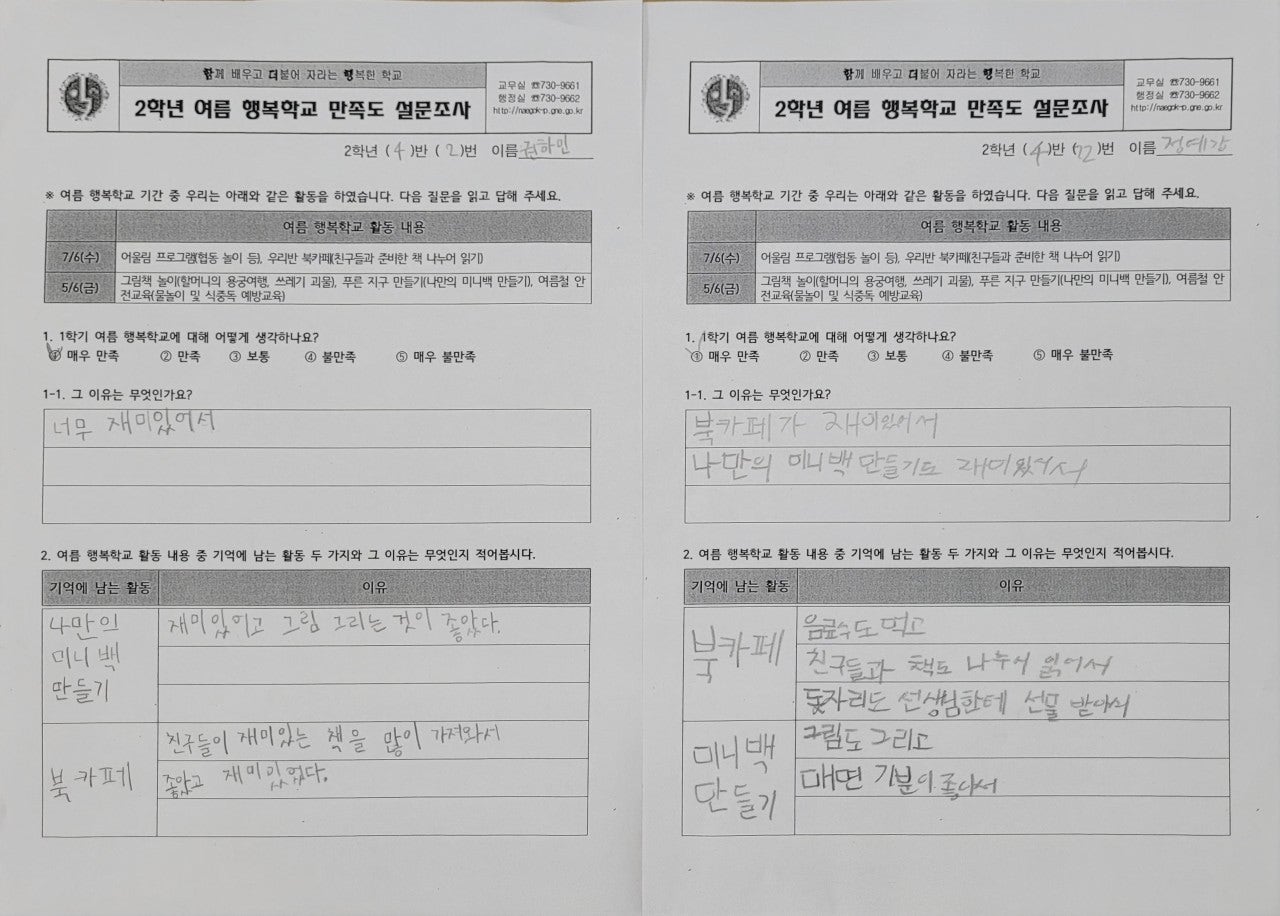 함께 배우고 더불어 자라는 행복한 학교
2학년 여름 행복학교 만족도 설문조사
교무실 ☎730-9661
행정실 ☎730-9662
http://naegok-p.gne.go.kr
2학년 ( 4 )반 ( 2 )번 이름 권하민
※ 여름 행복학교 기간 중 우리는 아래와 같은 활동을 하였습니다. 다음 질문을 읽고 답해 주세요.
여름 행복학교 활동 내용
7/6(수) 어울림 프로그램(협동 놀이 등), 우리반 북카페(친구들과 준비한 책 나누어 읽기)
5/6(금) 그림책 놀이(할머니의 용궁여행, 쓰레기 괴물), 푸른 지구 만들기(나만의 미니백 만들기), 여름철 안
전교육(물놀이 및 식중독 예방교육)
1. 1학기 여름 행복학교에 대해 어떻게 생각하나요?
① 매우 만족 ② 만족 ③ 보통 ④ 불만족 ⑤ 매우 불만족
1-1. 그 이유는 무엇인가요?
너무 재미있어서
2. 여름 행복학교 활동 내용 중 기억에 남는 활동 두 가지와 그 이유는 무엇인지 적어봅시다.
기억에 남는 활동 이유
나만의
미니 백
만들기
재미있이고 그림 그리는 것이 좋았다.
북카페
친구들이 재미있는 책을 많이 가져와서
좋았고 재미있었다.
함께 배우고 더불어 자라는 행복한 학교
2학년 여름 행복학교 만족도 설문조사
교무실 ☎730-9661
행정실 ☎730-9662
http://naegok-p.gne.go.kr
2학년 ( 4 )반 ( 22 )번 이름 정예강
※ 여름 행복학교 기간 중 우리는 아래와 같은 활동을 하였습니다. 다음 질문을 읽고 답해 주세요.
여름 행복학교 활동 내용
7/6(수) 어울림 프로그램(협동 놀이 등), 우리반 북카페(친구들과 준비한 책 나누어 읽기)
5/6(금) 그림책 놀이(할머니의 용궁여행, 쓰레기 괴물), 푸른 지구 만들기(나만의 미니백 만들기), 여름철 안
전교육(물놀이 및 식중독 예방교육)
1. 1학기 여름 행복학교에 대해 어떻게 생각하나요?
① 매우 만족 ② 만족 ③ 보통 ④ 불만족 ⑤ 매우 불만족
1-1. 그 이유는 무엇인가요?
북카페가 재미있어서
나만의 미니백 만들기도 재미있어서
2. 여름 행복학교 활동 내용 중 기억에 남는 활동 두 가지와 그 이유는 무엇인지 적어봅시다.
기억에 남는 활동 이유
북카페
음료수도 먹고
친구들과 책도 나누어 읽어서
돗자리도 선생님한테 선물 받아서
미니백
만들기
그림도 그리고
매면 기분이 좋아서